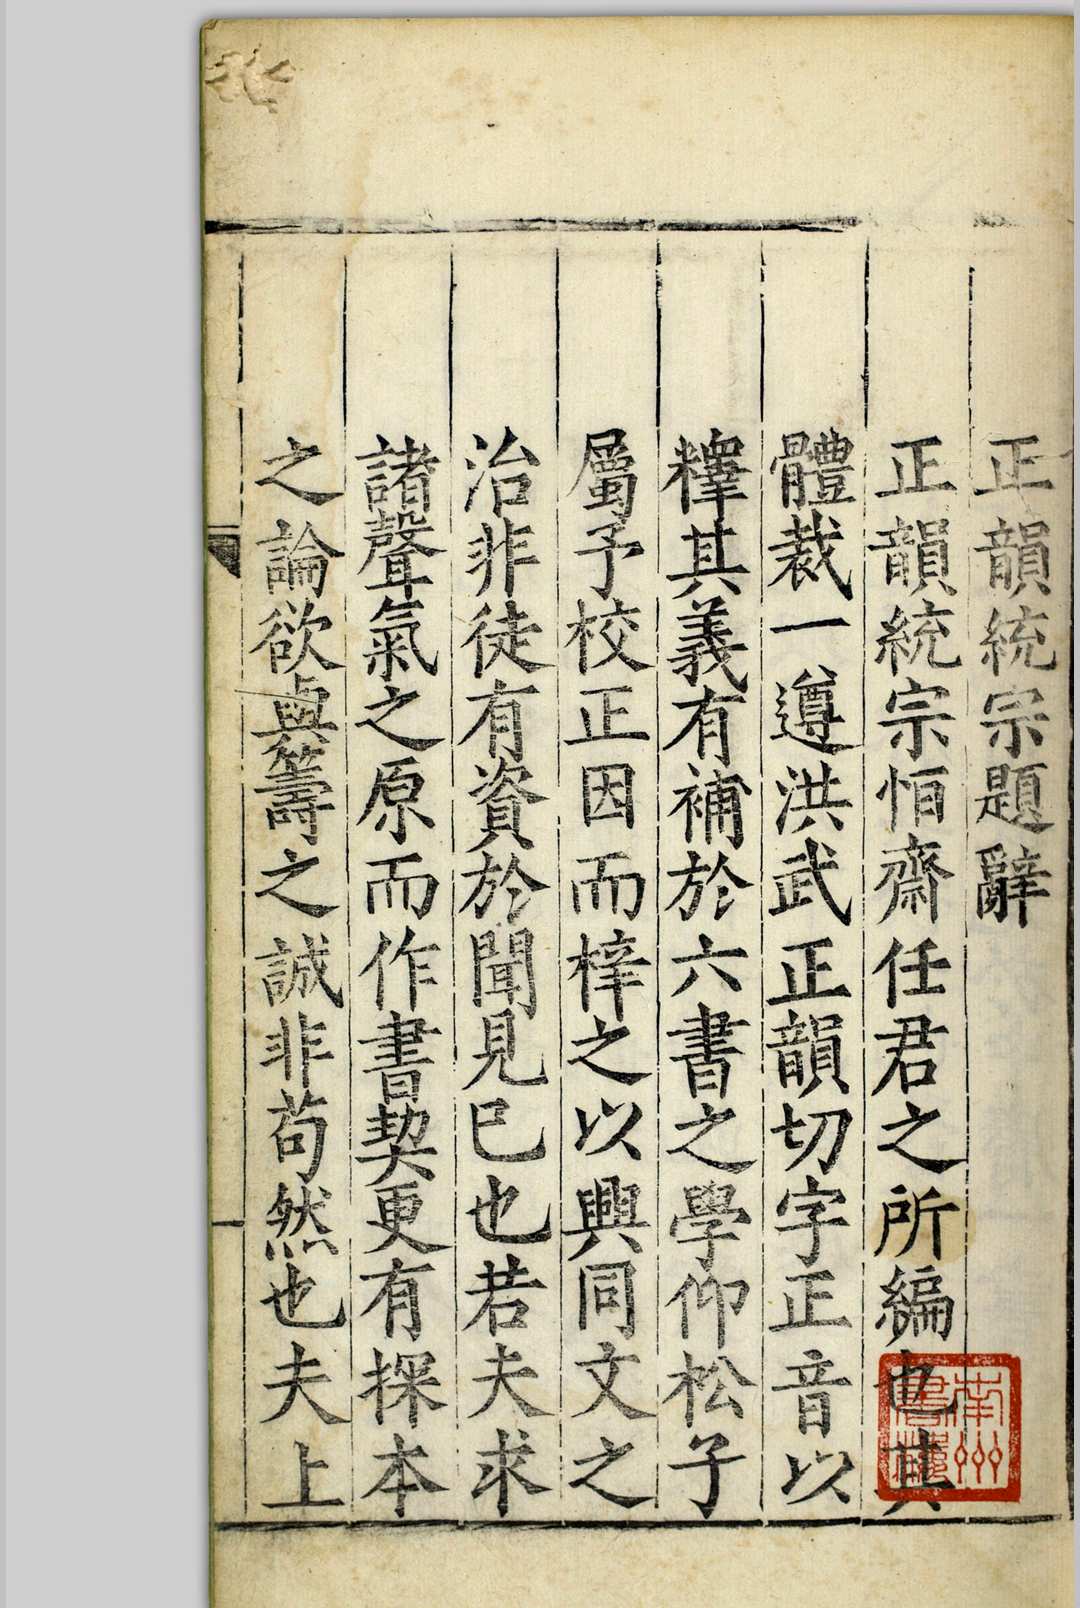 正韻統宗題辭
正韻統宗恒齋任君之所編也其
體裁一遵洪武正韻切字正音以
釋其義有補於六書之學仰松子
屬予校正因而梓之以興同文之
治非徒有資於聞見已也若夫求
諸聲氣之原而作書契更有探本
之論欲與籌之誠非苟然也夫上
南州
書樓